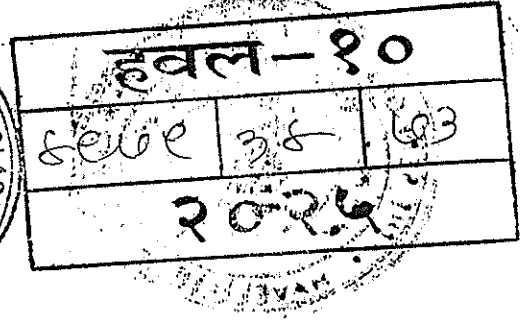 हवल-१०
४९७९ ३४ ७३
२०२५